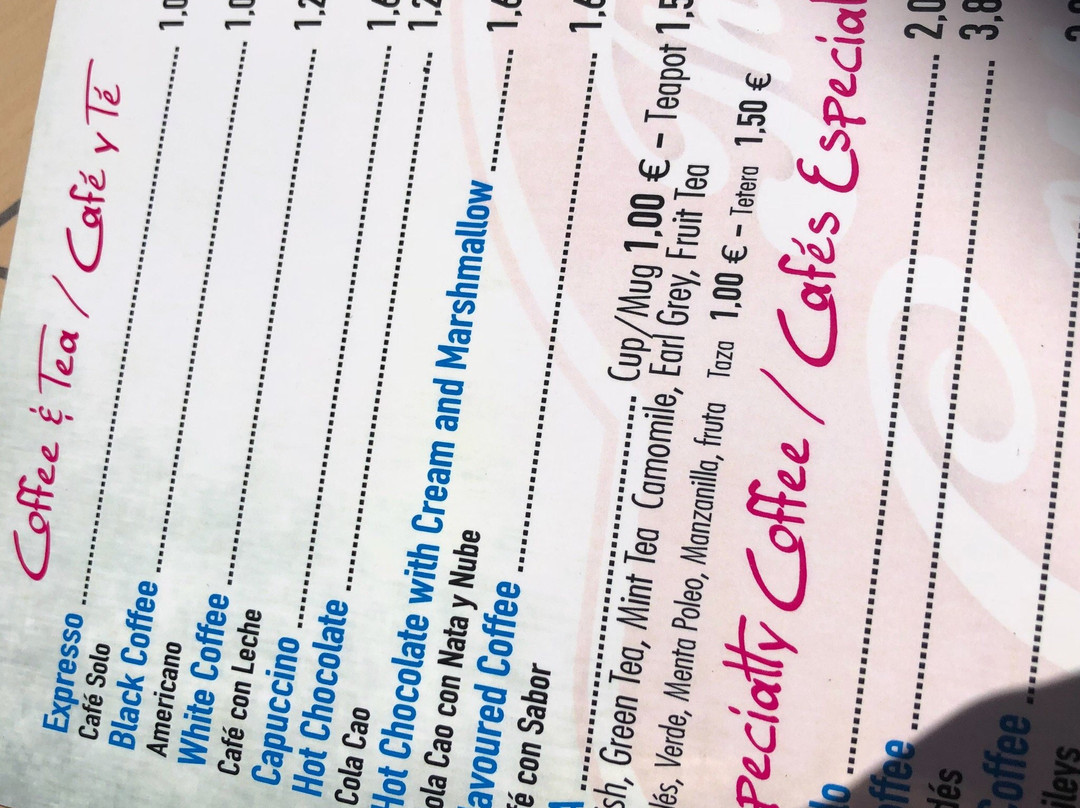 Coffee & Tea / Café y Té
Expresso 1,0
Café Solo
Black Coffee 1,0
Americano
White Coffee 1,2
Café con Leche
Cappuccino 1,6
Hot Chocolate 1,2
Cola Cao
Hot Chocolate with Cream and Marshmallow 1,6
ola Cao con Nata y Nube
lavoured Coffee 1,6
fé con Sabor
Cup/Mug 1,00 € - Teapot 1,5
sh, Green Tea, Mint Tea Camomile, Earl Grey, Fruit Tea
lés, Verde, Menta Poleo, Manzanilla, fruta Taza 1,00 € - Tetera 1,50 €
pecialty Coffee / Cafés Especial
lo 2,0
offee 3,8
és
offee
ileys